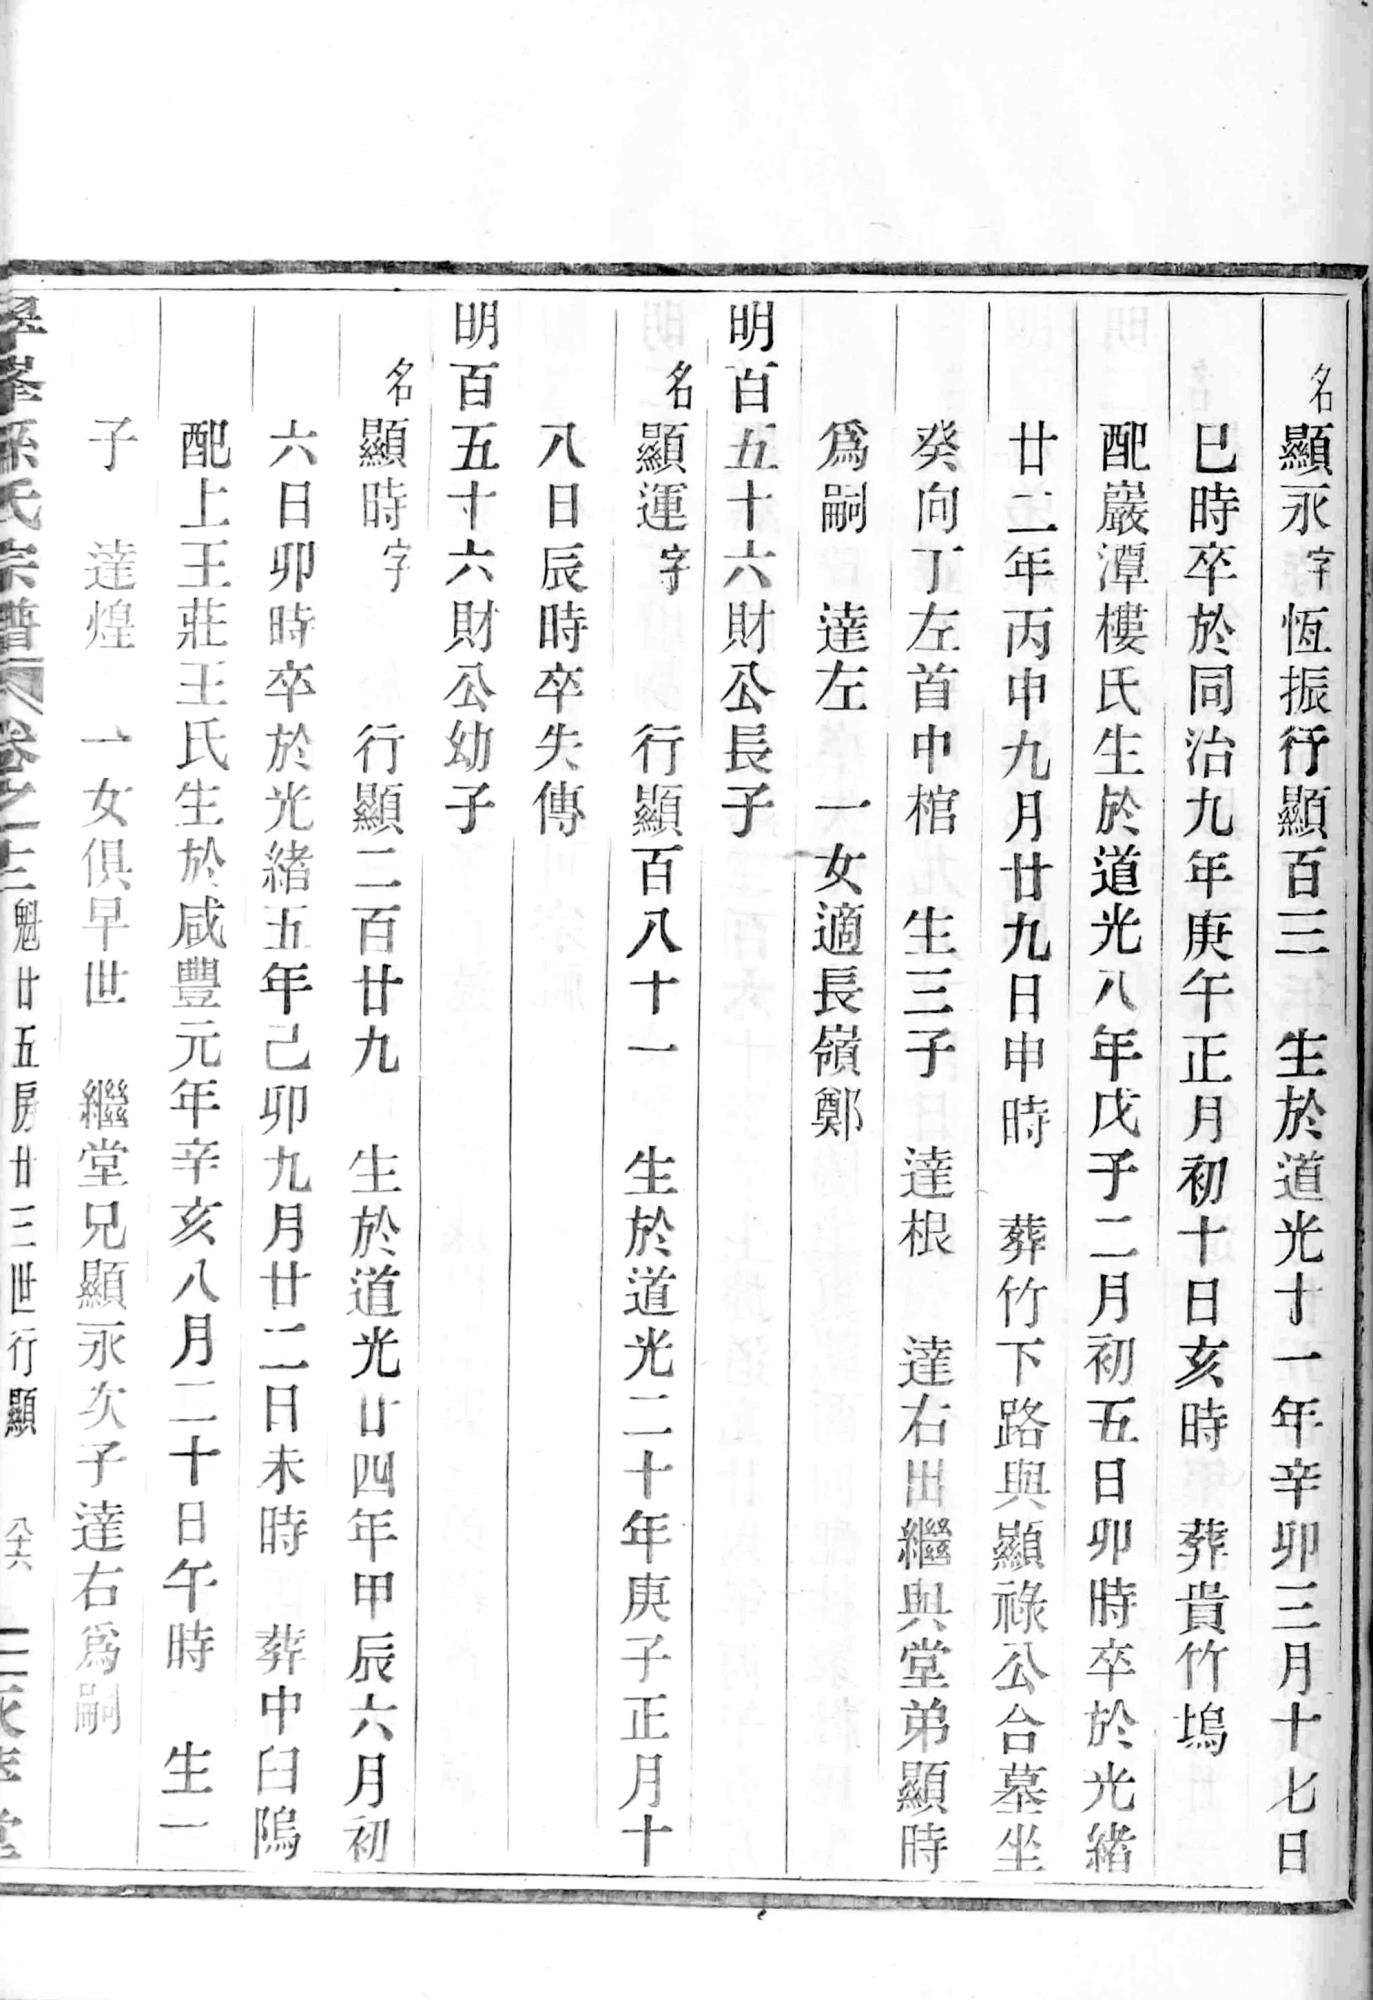 名顯永字恆振行顯百三　生於道光十一年辛卯三月十七日
巳時卒於同治九年庚午正月初十日亥時　葬貴竹塢
配巖潭樓氏生於道光八年戊子二月初五日卯時卒於光緒
廿二年丙申九月廿九日申時　葬竹下路與顯祿公合墓坐
癸向丁左首中棺　生三子　達根　達右出繼與堂弟顯時
爲嗣　達左　一女適長嶺鄭
明百五十六財公長子
名顯運字　行顯百八十一　生於道光二十年庚子正月十
八日辰時卒失傳
明百五十六財公幼子
名顯時字　行顯二百廿九　生於道光廿四年甲辰六月初
六日卯時卒於光緒五年己卯九月廿二日未時　葬中臼隖
配上王莊王氏生於咸豐元年辛亥八月二十日午時　生一
子　達煌　一女俱早世　繼堂兄顯永次子達右爲嗣
孫氏宗譜　卷之十三　魁廿五房廿三世行顯　八十六　堂